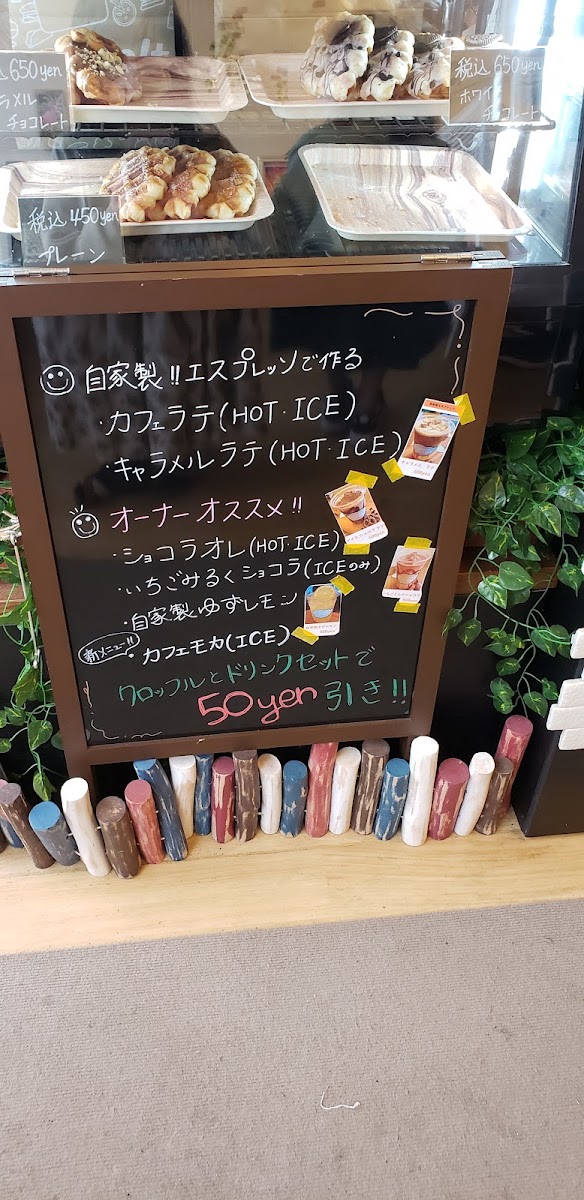 税込 650yen
ホワイ
チョコレート
込 650yen
ラメル
チョコレート
税込 450yen
プレーン
自家製!! エスプレッソで作る
・カフェラテ(HOT・ICE)
・キャラメルラテ(HOT・ICE)
オーナーオススメ!!
・ショコラオレ(HOT・ICE)
・いちごみるくショコラ(ICEのみ)
・自家製ゆずレモン
新メニュー!!
・カフェモカ(ICE)
クロッフルとドリンクセットで
50yen引き!!